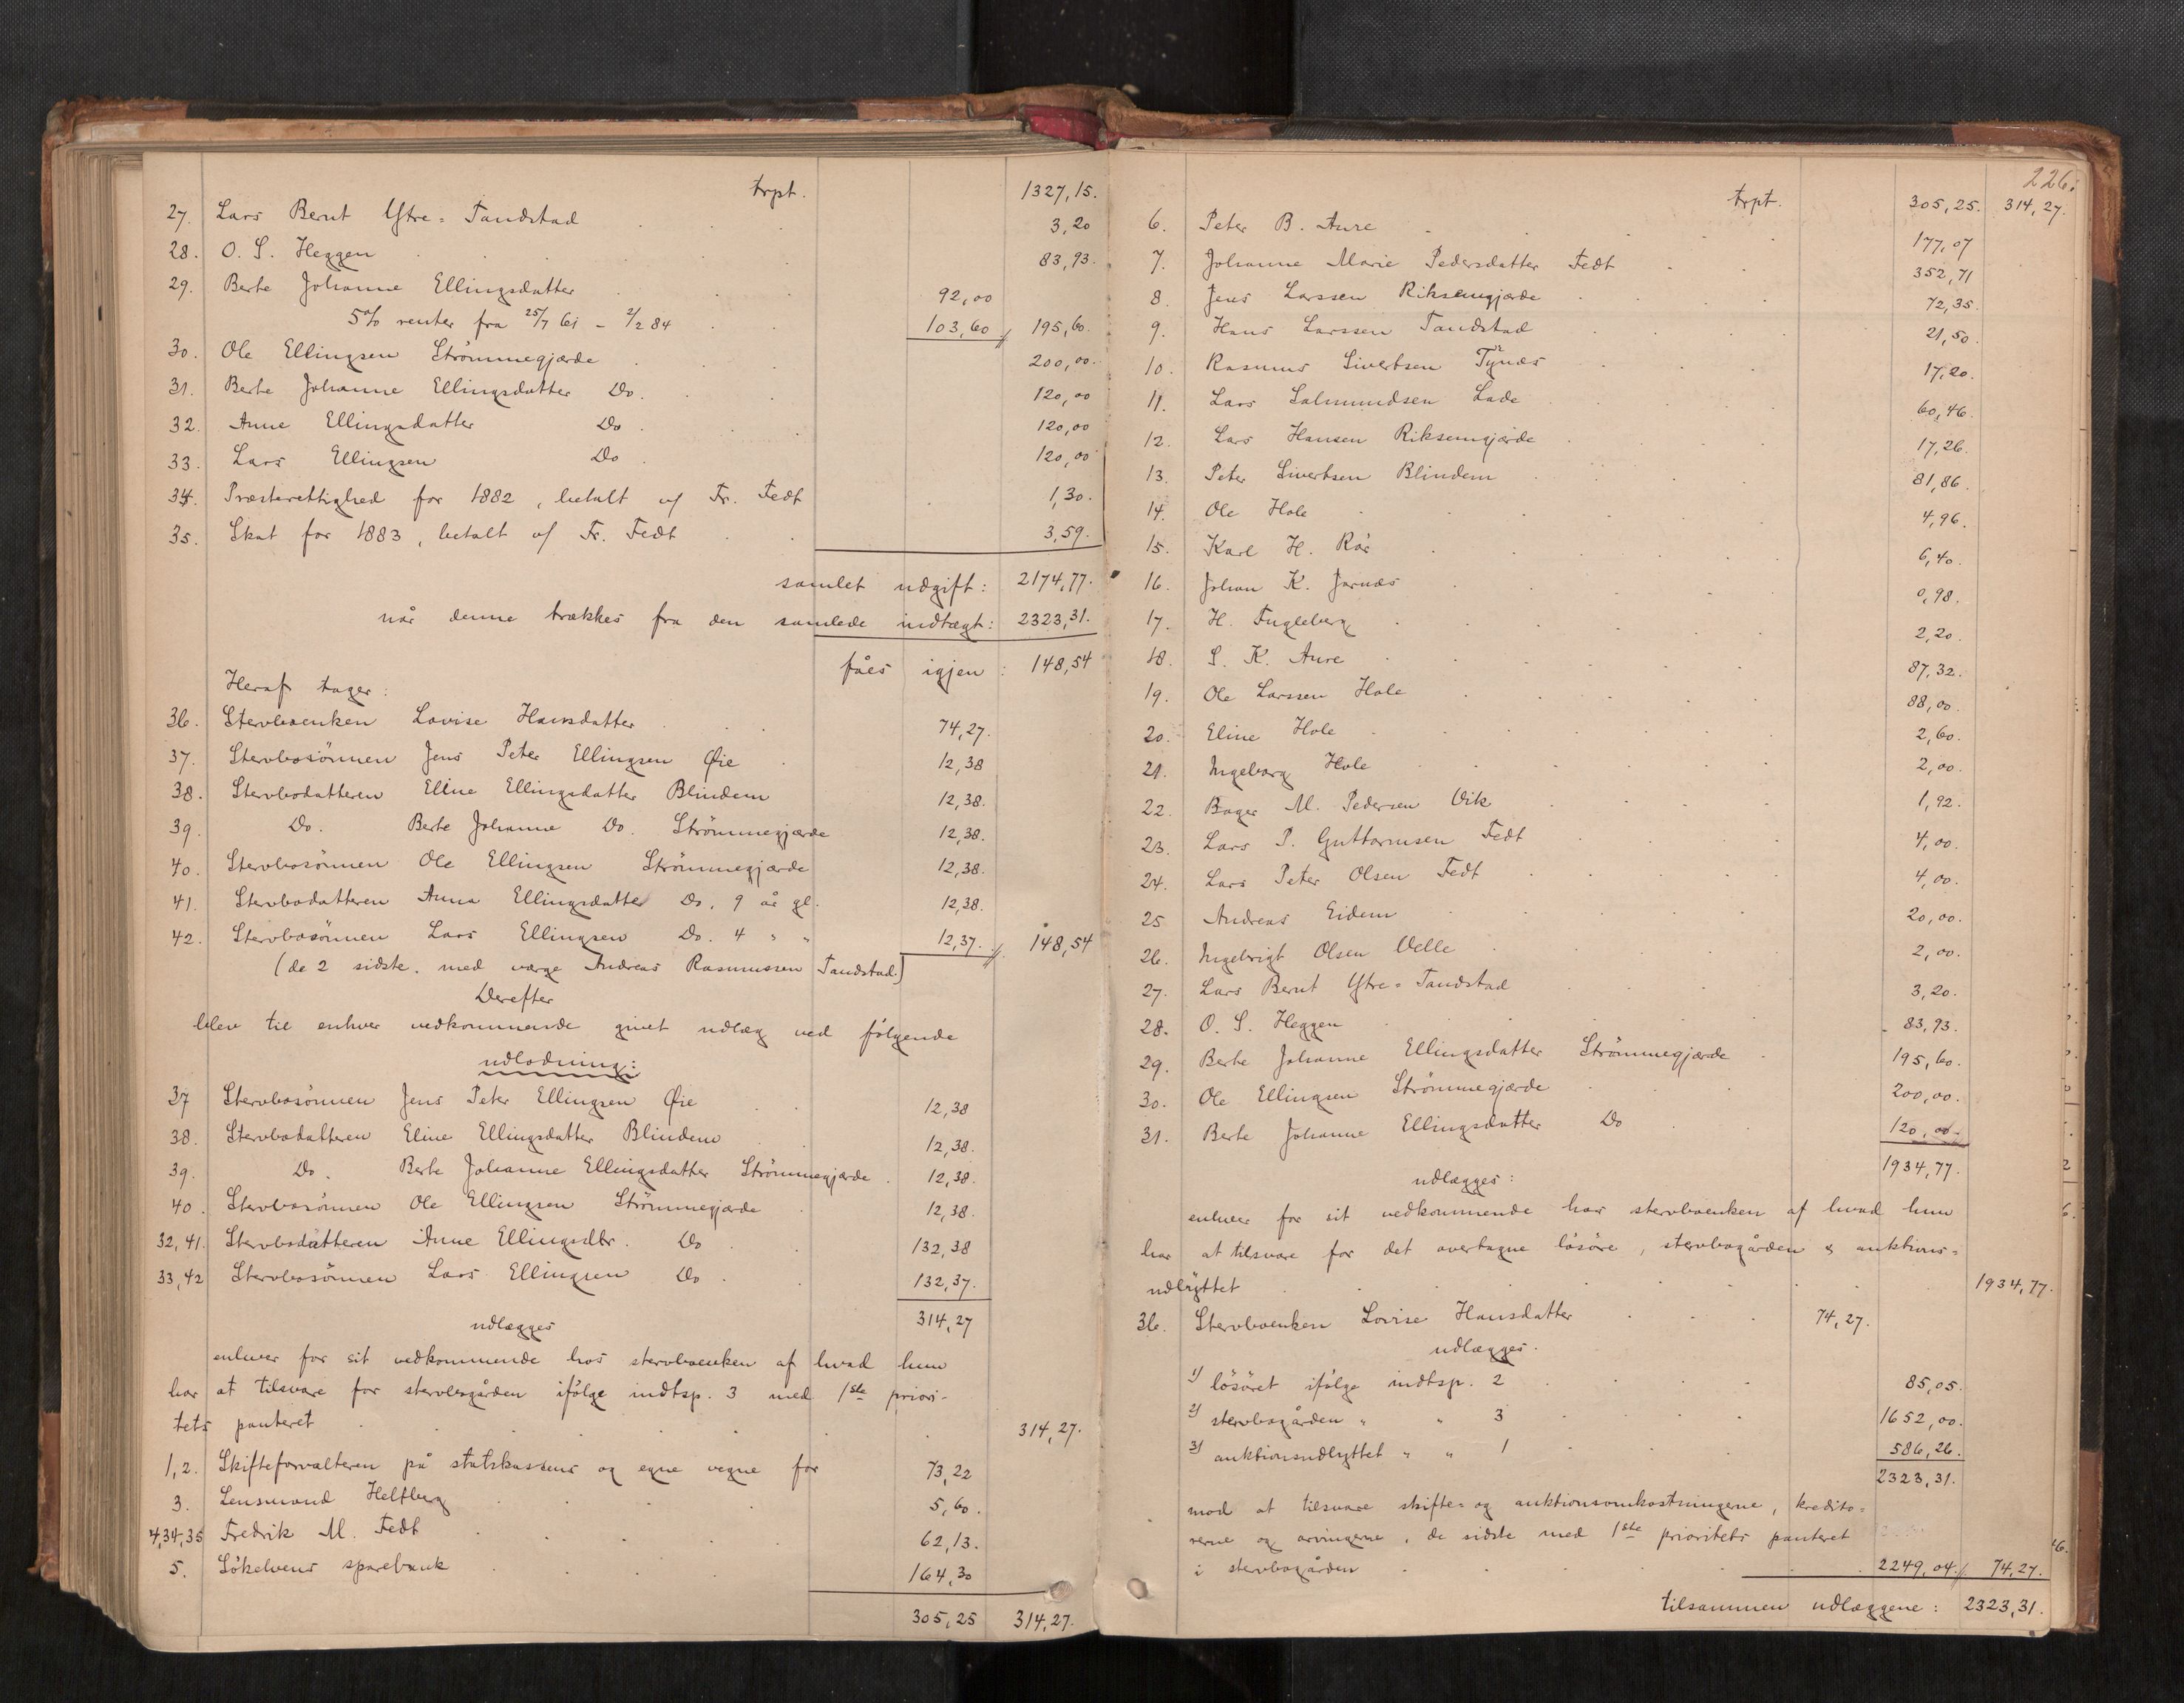 trpt. 1327,15.
27. Lars Bernt Ytre=Tandstad 3,20
28. O. S. Heggen 83,93.
29. Berte Johanne Ellingsdatter 92,00
5% renter fra 25/7 61 - 2/2 84 103,60 195,60.
30. Ole Ellingsen Strömmegjærde 200,00.
31. Berte Johanne Ellingsdatter Do. 120,00
32. Anne Ellingsdatter Do 120,00
33. Lars Ellingsen Do 120,00
34. Præsterettighed for 1882, betalt af Fr. Fedt 1,30.
35. Skat for 1883, betalt af Fr. Fedt 3,59.
samlet udgift: 2174,77.
når denne trækkes fra den samlede indtægt: 2323,31.
fåes igjen: 148,54
Heraf tager:
36. Stervboenken Lovise Hansdatter 74,27.
37. Stervbosönnen Jens Peter Ellingsen Øie 12,38
38. Stervbodatteren Eline Ellingsdatter Blindem 12,38.
39. Do. Berte Johanne Do. Strömmegjærde 12,38.
40. Stervbosönnen Ole Ellingsen Strömmegjærde 12,38.
41. Stervbodatteren Anna Ellingsdatter Do, 9 år gl. 12,38.
42. Stervbosönnen Lars Ellingsen Do. 4 " " 12,37. 148,54
(de 2 sidste med værge Andreas Rasmussen Tandstad.)
Derefter
blev til enhver vedkommende givet udlæg ved følgende
udlodning:
37 Stervbosönnen Jens Peter Ellingsen Øie 12,38
38. Stervbodatteren Eline Ellingsdatter Blindem 12,38.
39. Do. Berte Johanne Ellingsdatter Strömmegjærde 12,38.
40. Stervbosönnen Ole Ellingsen Strömmegjærde 12,38.
32,41. Stervbodatteren Anne Ellingsdtr. Do 132,38
33,42 Stervbosönnen Lars Ellingsen Do 132,37.
314,27
udlægges
enhver for sit vedkommende hos stervboenken af hvad hun
har at tilsvare for stervbogården ifölge indtsp. 3 med 1ste priori-
tets panteret 314,27.
1,2. Skifteforvalteren på statskassens og egne vegne for 73,22
3. Lensmand Helfberg 5,60.
4,34,35 Fredrik M. Fedt 62,13.
5. Sökelvens sparebank 164,30
305,25 314,27.
226.
trpt. 305,25. 314,27.
6. Peter B. Aure 177,07
7. Johanne Marie Pedersdatter Fedt 352,71
8. Jens Larssen Riksemgjærde 72,35.
9. Hans Larssen Tandstad 21,50.
10. Rasmus Sivertsen Tynæs 17,20.
11. Lars Salmundsen Lade 60,46.
12. Lars Hansen Riksemgjærde 17,26.
13. Peter Sivertsen Blindem 81,86.
14. Ole Hole 4,96.
15. Karl H. Rös 6,40.
16. Johan K. Jarnæs 0,98.
17. H. Fugleberg 2,20.
18. S. K. Aure 87,32.
19. Ole Larssen Hole 88,00.
20. Eline Hole 2,60.
21. Ingeborg Hole 2,00.
22. Bager M. Pedersen Vik 1,92.
23. Lars P. Guttormsen Fedt 4,00.
24. Lars Peter Olsen Fedt 4,00.
25 Andreas Eidem 20,00.
26. Ingebrigt Olsen Velle 2,00.
27. Lars Bernt Ytre=Tandstad 3,20.
28. O. S. Heggen 83,93.
29. Berte Johanne Ellingsdatter Strömmegjærde 195,60.
30. Ole Ellingsen Strömmegjærde 200,00.
31. Berte Johanne Ellingsdatter Do 120,00.
1934,77.
udlægges:
enhver for sit vedkommende hos stervboenken af hvad hun
har at tilsvare for det overtagne lösöre, stervbogården & auktions=
udbyttet 1934,77.
36. Stervboenken Lovise Hansdatter 74,27.
udlægges.
1) lösöret ifölge indtsp. 2 85,05.
2) stervbogården " " 3 1652,00.
3) auktionsudbyttet " " 1 586,26.
2323,31.
mod at tilsvare skifte= og auktionsomkostningerne, kredito=
rerne og arvingerne, de sidste med 1ste prioritets panteret
i stervbogården 2249,04. 74,27.
tilsammen udlæggene: 2323,31.